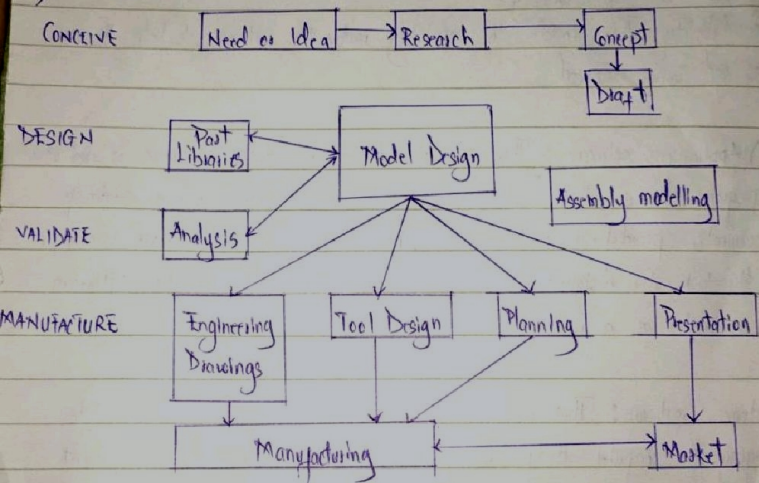 CONCEIVE Need or Idea Research Concept
Draft
DESIGN Part Model Design
Libraries
Assembly modelling
VALIDATE Analysis
MANUFACTURE Engineering Tool Design Planning Presentation
Drawings
Manufacturing Market